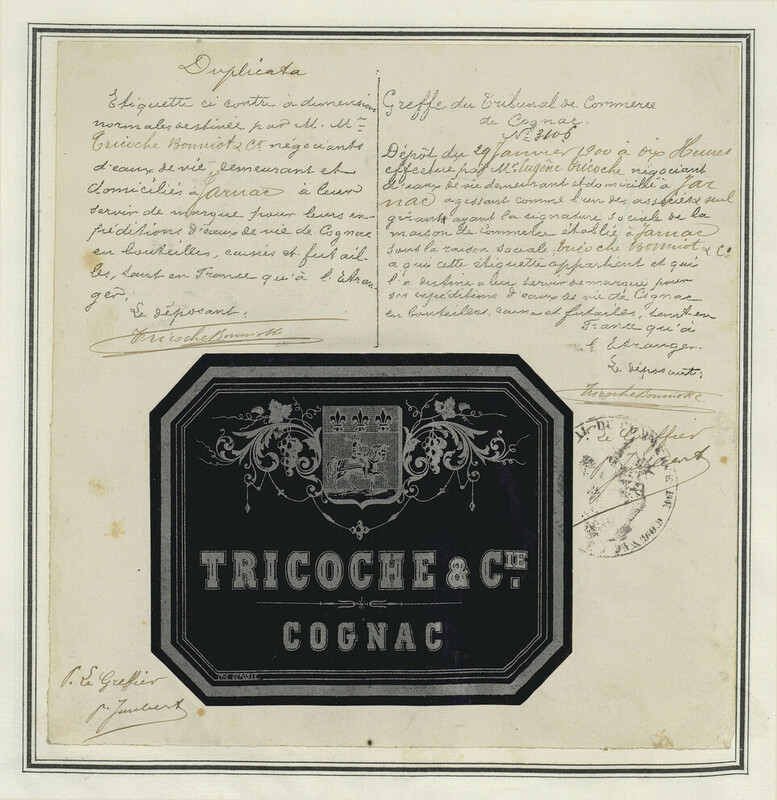 Duplicata
Etiquette ci contre à dimensions
normales destinée par M. M.rs
Tricoche Bonniot & Cie négociants
d'eaux de vie, demeurant et
domiciliés à Jarnac à leur
servir de marque pour leurs ex-
péditions d'eaux de vie de Cognac
en bouteilles, caisses et futail-
les, tant en France qu'à l'Etran-
ger.
Le déposant,
Tricoche Bonniot &
Greffe du Tribunal de Commerce
de Cognac
No 3106
Dépôt du 29 Janvier 1900 à dix Heures
effectué par Mr Eugène Tricoche négociant
d'eaux de vie demeurant et domicilié à Jar
nac agissant comme l'un des associés & seul
gérant ayant la signature sociale de la
maison de Commerce établie à Jarnac
sous la raison sociale Tricoche Bonniot & Co
a qui cette étiquette appartient et qui
l'a destine a leur servir de marque pour
ses expéditions d'eaux de vie de Cognac
en bouteilles, caisses et futailles, tant en
France qu'à
l'Etranger.
Le déposant,
Tricoche Bonniot &
Le Greffier
TRICOCHE & CIE.
COGNAC
P. Le Greffier
p. Jaubert
DE COGNAC